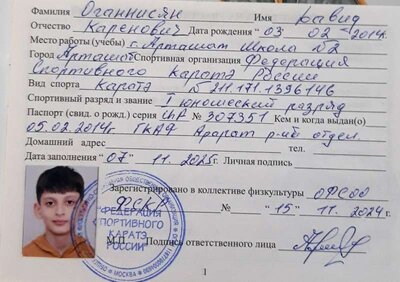 Фамилия Оганнисян Имя Давид
Отчество Каренович Дата рождения "03" 02 2014г.
Место работы (учебы) г. Арташат Школа №2
Город Арташат Спортивная организация Федерация
Спортивного каратэ России
Вид спорта каратэ № 211.171.1396146
Спортивный разряд и звание I юношеский разряд
Паспорт (свид. о рожд.) серия № 307351 Кем и когда выдан(о)
05.02.2014г. Арарат р-ный отдел.
Домашний адрес тел.
Дата заполнения "07" 11. 2025г. Личная подпись
Зарегистрировано в коллективе физкультуры ОФСОО
ФСКР № "15" 11. 2024г.
"ФЕДЕРАЦИЯ
СПОРТИВНОГО
КАРАТЭ
РОССИИ"
МОСКВА
М.П. Подпись ответственного лица
1